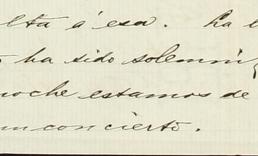 lta á esa. ha l
ha sido solemni
noche estamos de
un concierto.